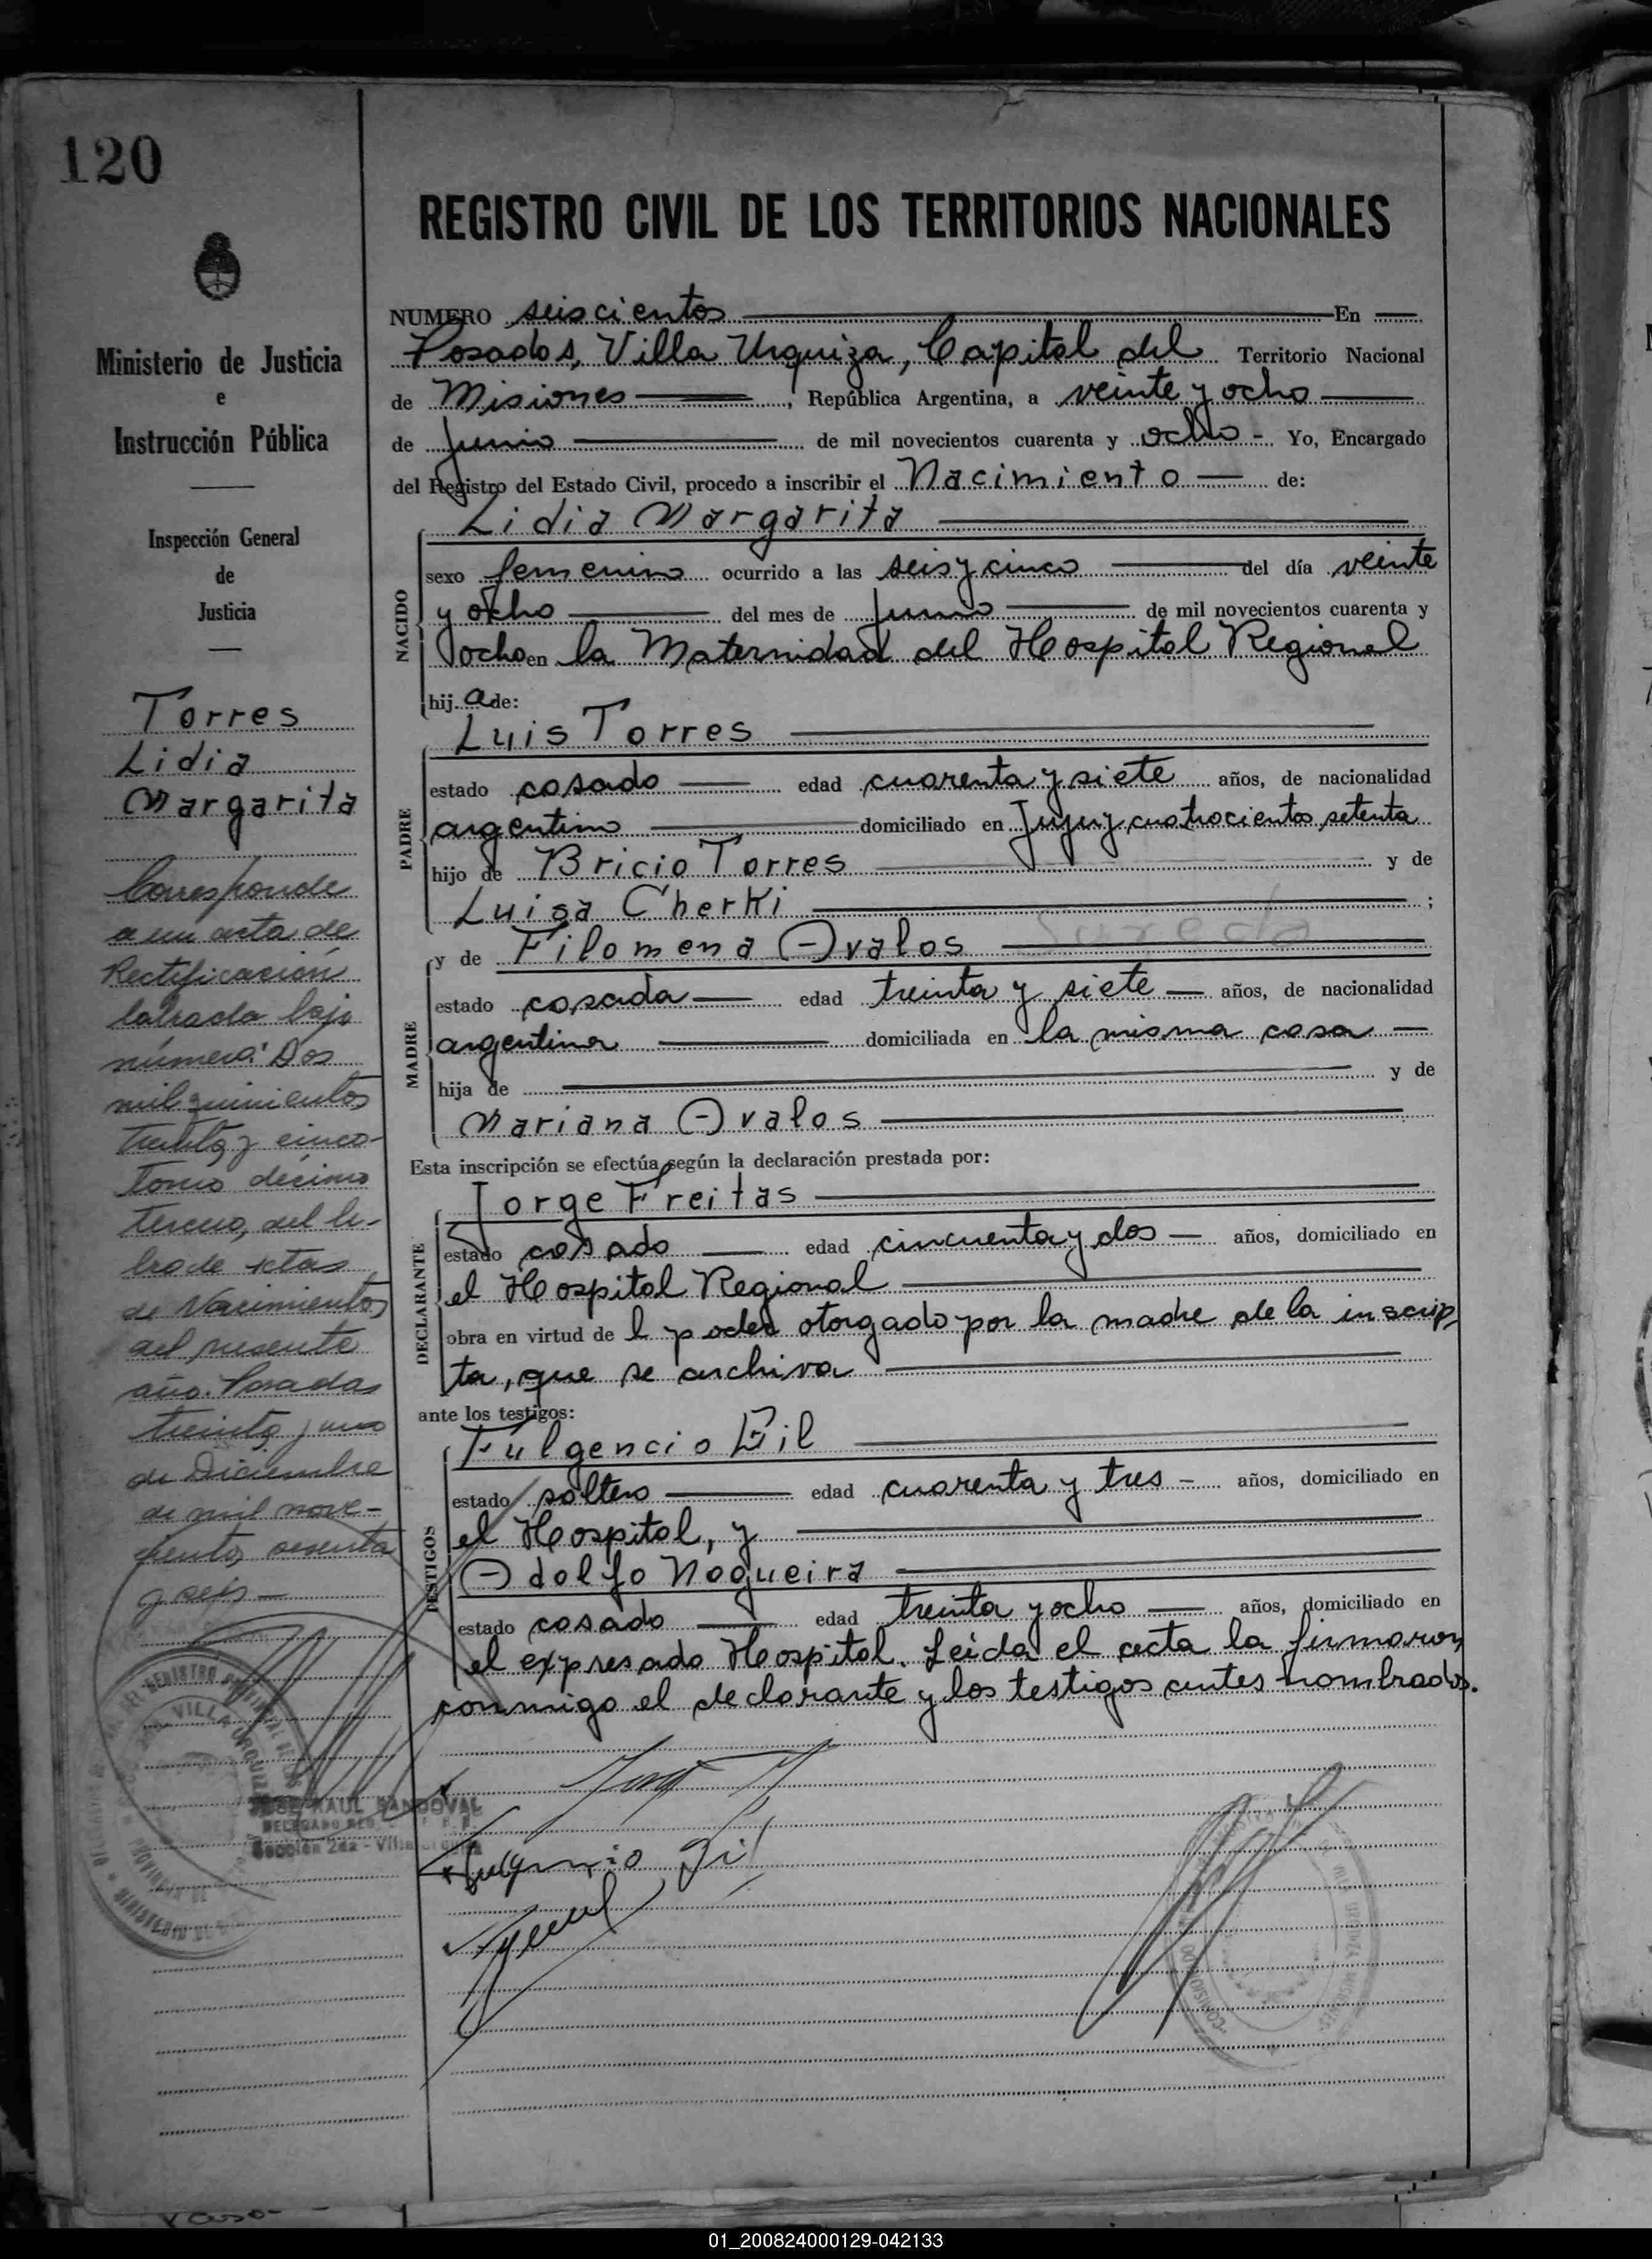 120
REGISTRO CIVIL DE LOS TERRITORIOS NACIONALES
Ministerio de Justicia
e
Instrucción Pública
Inspección General
de
Justicia
Torres
Lidia
Margarita
Corresponde
a un acta de
Rectificación
labrada bajo
número: Dos
mil quinientos
treinta y cinco-
Tomo décimo
tercero, del li-
bro de actas
de Nacimientos
del presente
año. Posadas
treinta y uno
de Diciembre
de mil nove-
cientos sesenta
y seis —
NUMERO seiscientos En
Posadas, Villa Urquiza, Capital del Territorio Nacional
de Misiones, República Argentina, a veinte y ocho
de Junio de mil novecientos cuarenta y ocho - Yo, Encargado
del Registro del Estado Civil, procedo a inscribir el Nacimiento — de:
Lidia Margarita
NACIDO
sexo femenino ocurrido a las seis y cinco del día veinte
y ocho del mes de Junio de mil novecientos cuarenta y
ocho en la Maternidad del Hospital Regional
hija de:
Luis Torres
PADRE
estado casado edad cuarenta y siete años, de nacionalidad
argentino domiciliado en Jujuy cuatrocientos setenta
hijo de Bricio Torres y de
Luisa Cherki ;
y de Filomena Avalos
MADRE
estado casada edad treinta y siete años, de nacionalidad
argentina domiciliada en la misma casa
hija de y de
Mariana Avalos
Esta inscripción se efectúa según la declaración prestada por:
Jorge Freitas
DECLARANTE
estado casado edad cincuenta y dos años, domiciliado en
el Hospital Regional
obra en virtud del poder otorgado por la madre de la inscrip-
ta, que se archiva
ante los testigos:
Fulgencio Gil
TESTIGOS
estado soltero edad cuarenta y tres - años, domiciliado en
el Hospital, y
Adolfo Nogueira
estado casado edad treinta y ocho años, domiciliado en
el expresado Hospital. Leida el acta la firmaron
conmigo el declarante y los testigos antes nombrados.
Fulgencio Gil
JOSE RAUL SANDOVAL
Sección 2da - Villa Urquiza
01_200824000129-042133